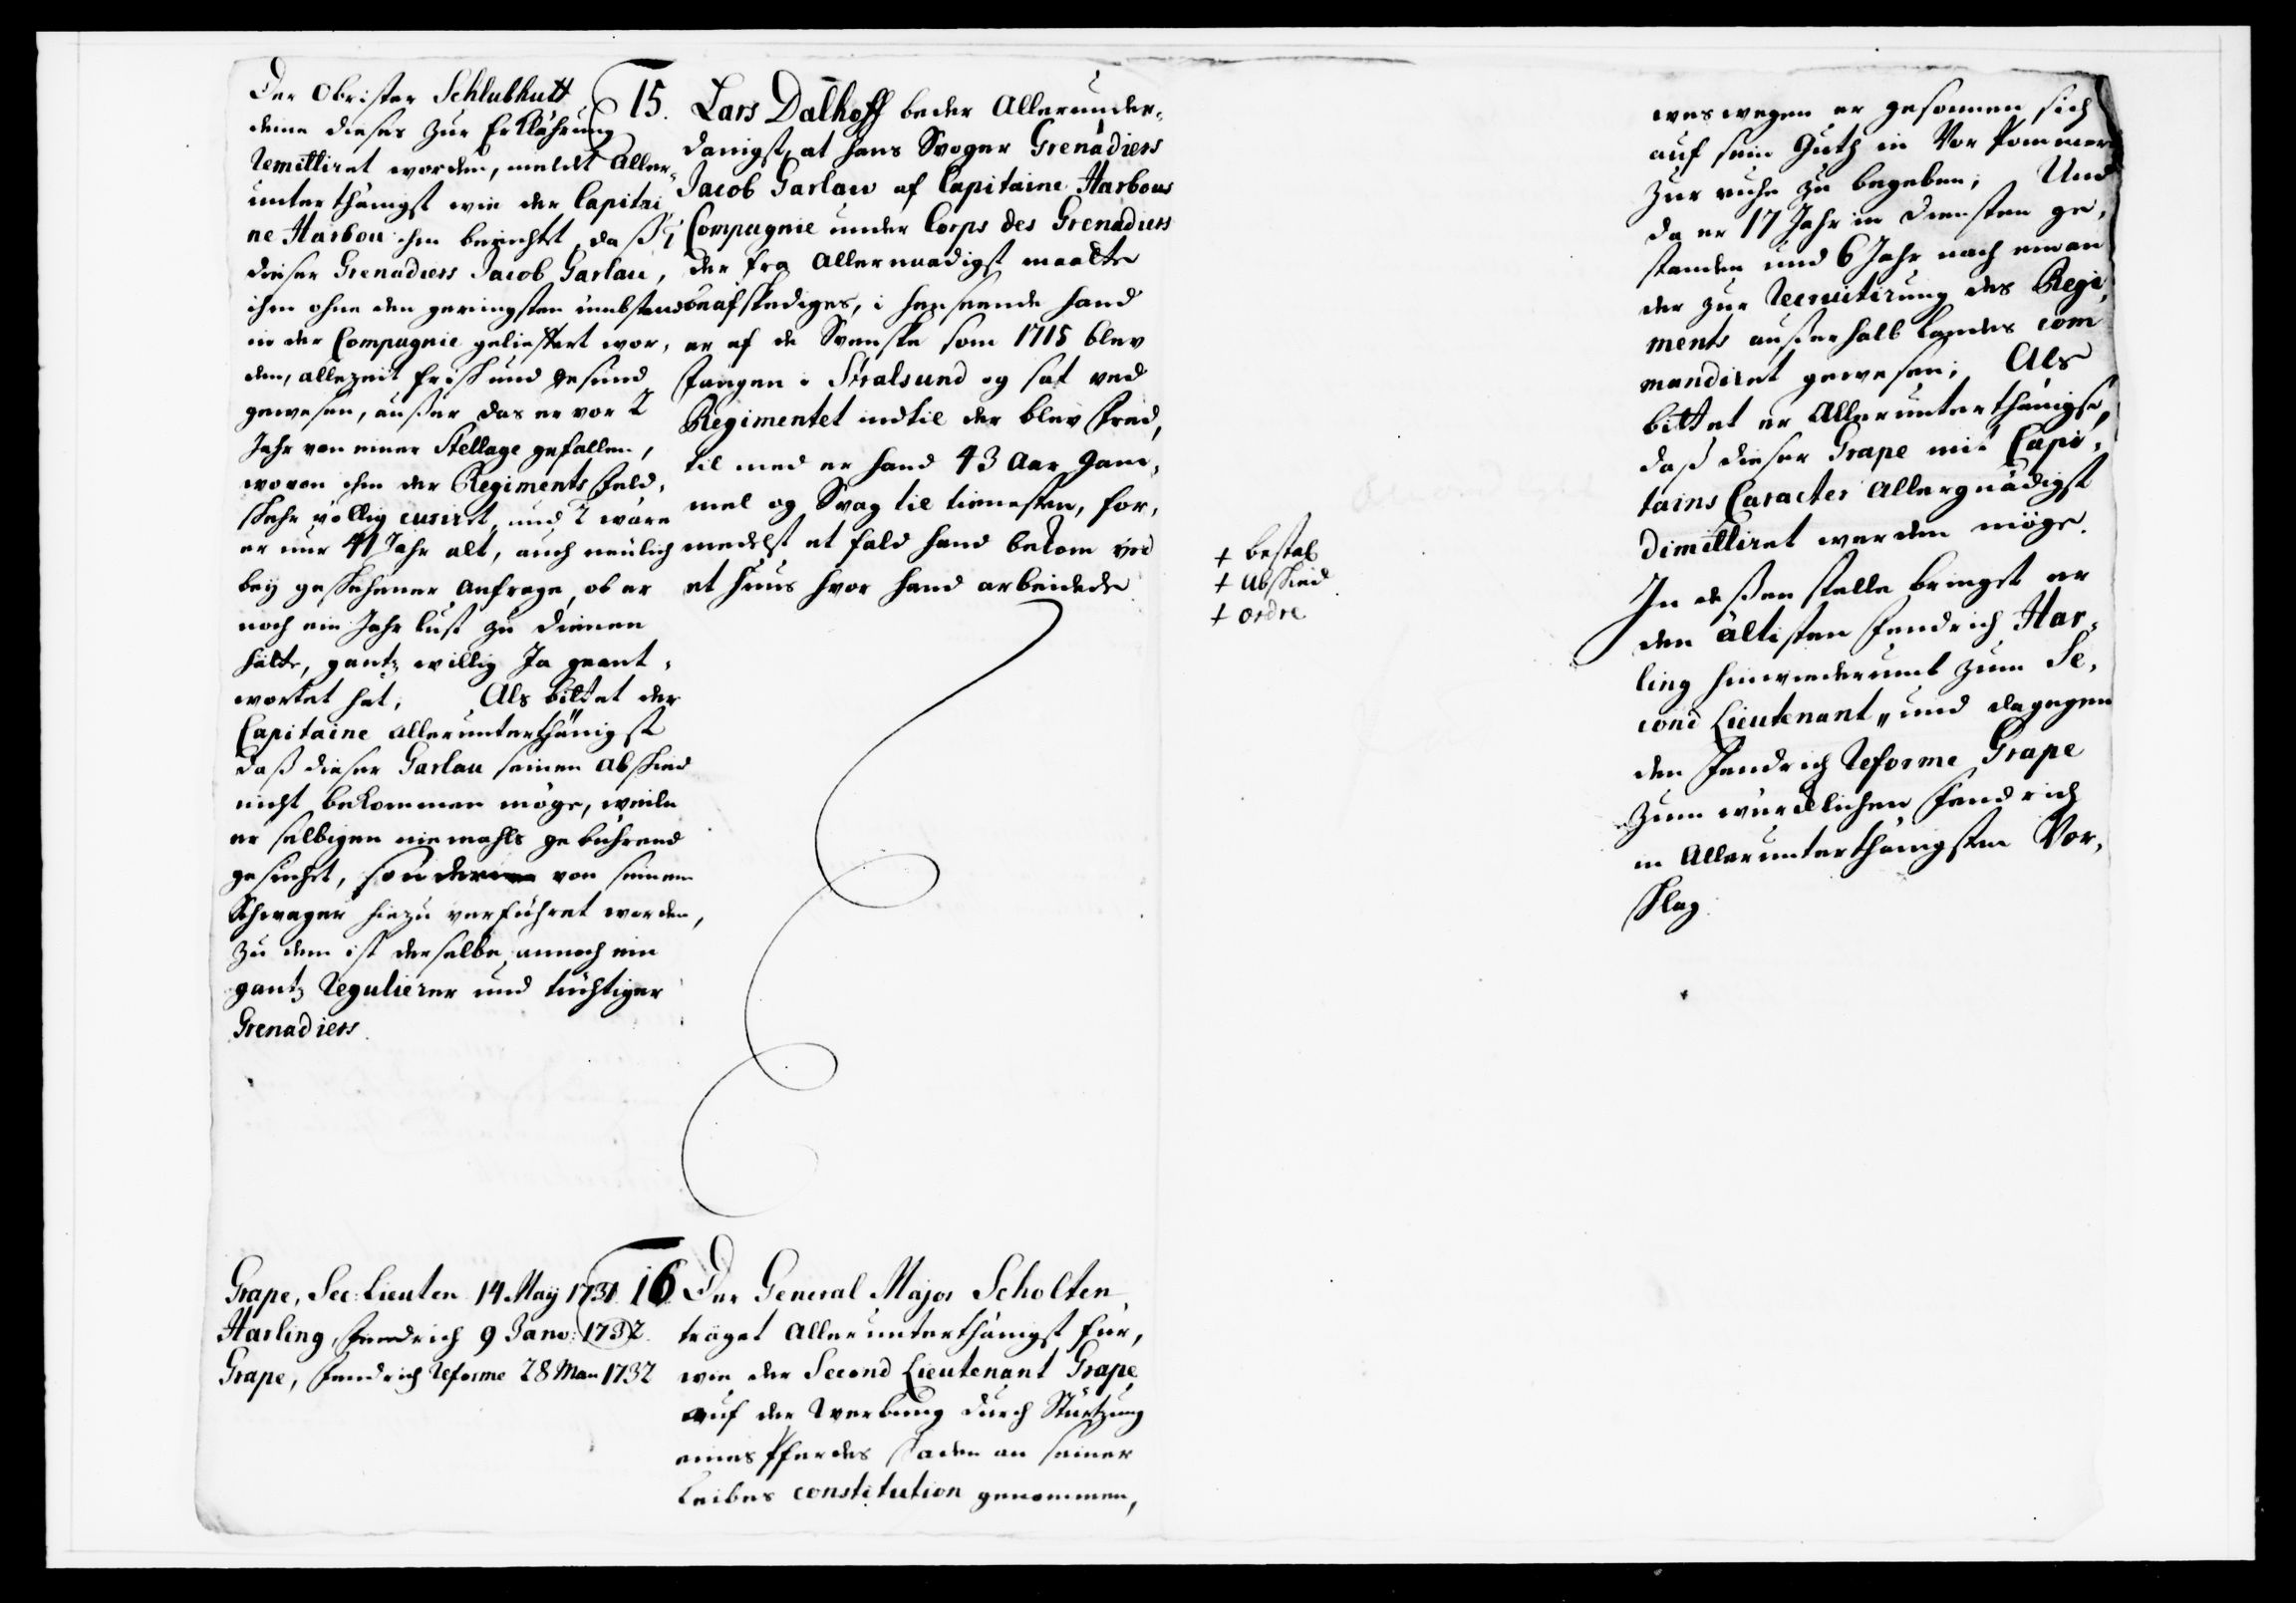 Der Obrister Schlubhutt
deme dieses zur Erklährung
remittiret worden, meldt Aller-
unterthänigst wie der Capitai
ne Harbou ihm berichtet, daß
dieser Grenadiers Jacob Garlau,
ihm ohne den geringsten
in der Compagnie geliefert wor-
den, allezeit frisch und gesund
gewesen, außer das er vor 2
Jahr von einer Stellage gefallen,
wovon ihm der Regiments Feld-
schehr völlig curiret, und wäre
er nur 41 Jahr alt, auch neulich
bey geschehener Anfrage, ob er
noch ein Jahr lust zu dienen
hätte, gantz willig Ja geant-
wortet hat; Als bittet der
Capitaine allerunterthänigst
daß dieser Garlau seinen Abschied
nicht bekommen möge, weile
er selbigen niemahls gebührend
gesuchet, sondern von seinem
Schwager hiezu verführet worden,
zu dem ist derselbe annoch ein
gantz Regulierer und tüchtiger
Grenadiers.
15. Lars Dalhoff beder Allerunder-
danigst, at hans Svoger Grenadiers
Jacob Garlau af Capitaine Harbous
Compagnie under Corps des Grenadiers
der fra Allernaadigst maatte
beafskediges, i henseende hand
er af de Svenske som 1715 blev
fangen i Stralsund og sat ved
Regimentet indtil der blev Fred,
til med er hand 43 Aar gam-
mel og Svag til tienesten, for-
medelst et fald hand bekom ved
et Huus hvor hand arbeidede.
Grape, Sec: Lieuten 14 May 1731.
Harling, Fendrich 9 Janv: 1732.
Grape, Fendrich Reforme 28 Man 1732
16. Der General Major Scholten
träget Allerunterthänigst für,
wie der Second Lieutenant Grape
auf der Werbung durch Stürtzung
eines Pferdes Schaden an seiner
Leibes constitution genommen,
+ bestal
+ Abschied
+ ordre
weswegen er gesonnen sich
auf sein Guth in Vor Pommern
zur ruhe zu begeben; Und
da er 17 Jahr in Diensten ge-
standen und 6 Jahr nach einan
der zur Recruitirung des Regi-
ments außerhalb Landes com
mandiret gewesen; Als
bittet er Allerunterthänigst,
daß dieser Grape mit Capi-
tains Caracter Allergnädigst
dimittiret werden möge.
In deßen stelle bringet er
den ältisten Fendrich Har-
ling hinwiederumb zum Se-
cond Lieutenant, und dagegen
den Fendrich Reforme Grape
zum würcklichen Fendrich
in Allerunterthänigsten Vor-
schlag.